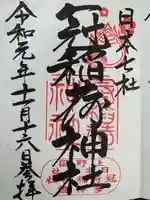 日本七社
冠稲荷神社
令和元年十一月十六日参拝